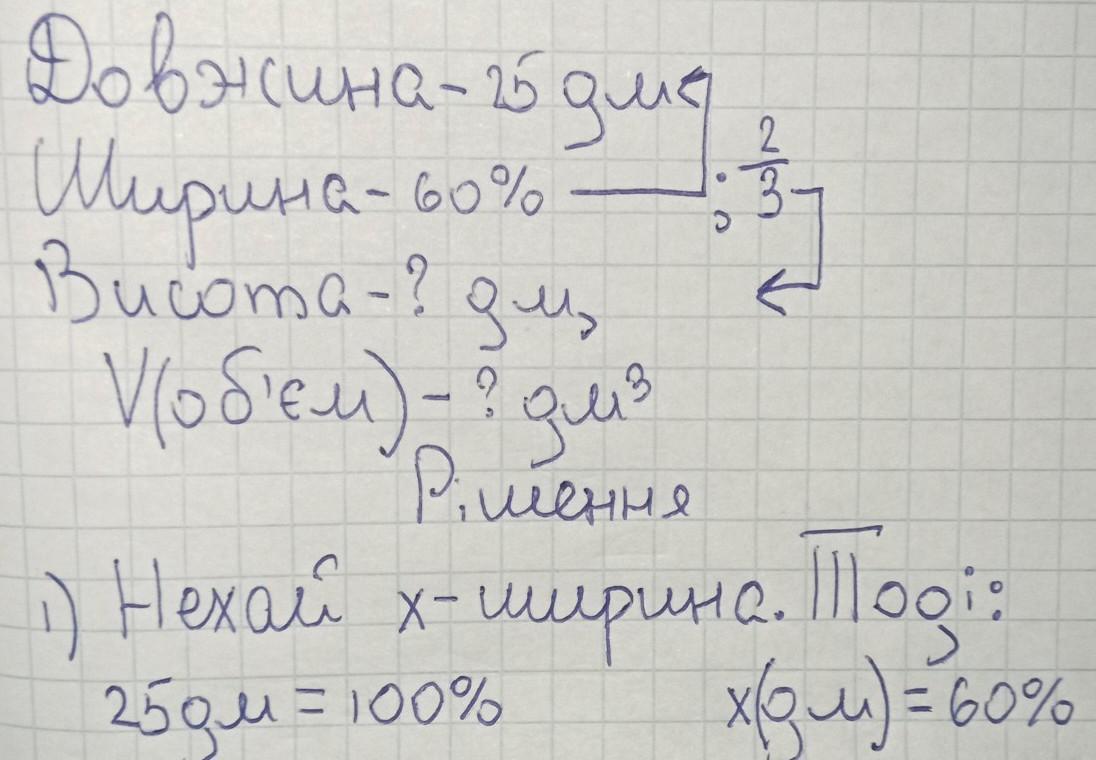 Довжина - 25 дм
Ширина - 60% ; 2/3
Висота - ? дм,
V(об'єм) - ? дм³
Рішення
1) Нехай x - ширина. Тоді:
25 дм = 100% x(дм) = 60%